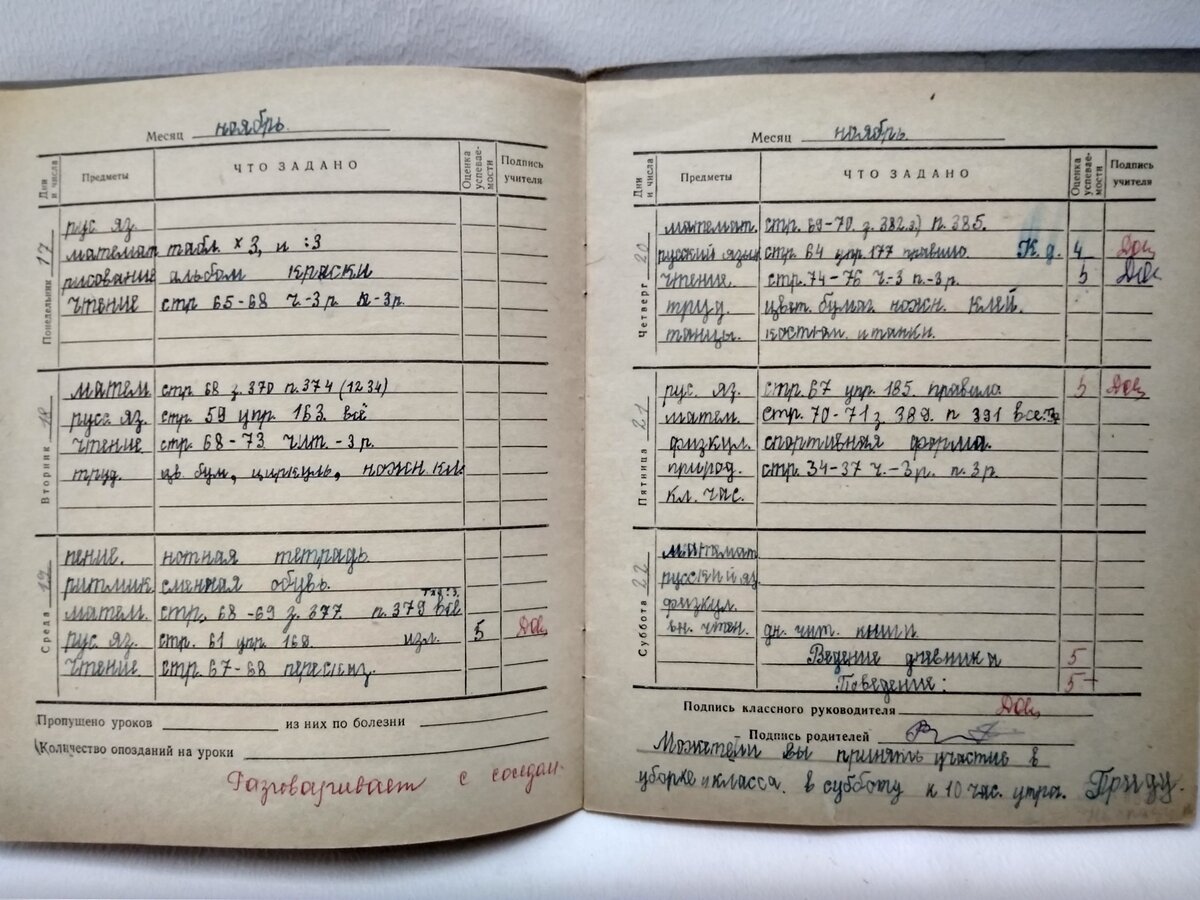 Месяц ноябрь.
Дни и числа Предметы ЧТО ЗАДАНО Оценка успеваемости Подпись учителя
Понедельник 17
рус. яз.
математ табл. х 3, и :3
рисование альбом краски
чтение стр 65-68 ч-3 р. п-3 р.
Вторник 18
матем. стр. 68 з. 370 п. 374 (1234)
русс. яз. стр. 59 упр. 163. всё
чтение. стр. 68-73 чит. -3 р.
труд. цв. бум, циркуль, ножн. кле
Среда 19
пение. нотная тетрадь
ритмик сменная обувь.
матем. стр. 68-69 з. 377. п. 379 всё
рус. яз. стр. 61 упр. 169. изл. 5
чтение стр 67-68 пересказ.
Пропущено уроков из них по болезни
Количество опозданий на уроки
Разговаривает с соседом.
Месяц ноябрь.
Дни и числа Предметы ЧТО ЗАДАНО Оценка успеваемости Подпись учителя
Четверг 20
математ. стр. 69-70. з. 382 п. 385.
русский язык стр 64 упр. 177 правило. К. д. 4
чтение. стр. 74-76 ч-3 п-3 р. 5
труд. цвет. бумаг. ножн. клей.
танцы. костюм. и тапки.
Пятница 21
рус. яз. стр. 67 упр. 185. правила 5
матем. стр. 70-71 з. 389. п 391
физкул. спортивная форма.
природ. стр. 34-37 ч.-3 р. п. 3 р.
кл. час.
Суббота 22
математ
русский яз.
физкул.
вн. чтен. дн. чит. книги
Ведение дневника 5
Поведение: 5+
Подпись классного руководителя
Подпись родителей
Можете ли вы принять участие в
уборке класса. в субботу к 10 час. утра. Приду.